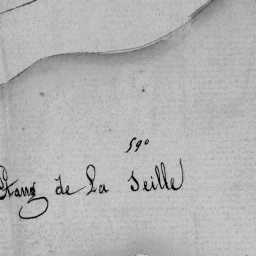 590
Etang de La Seille